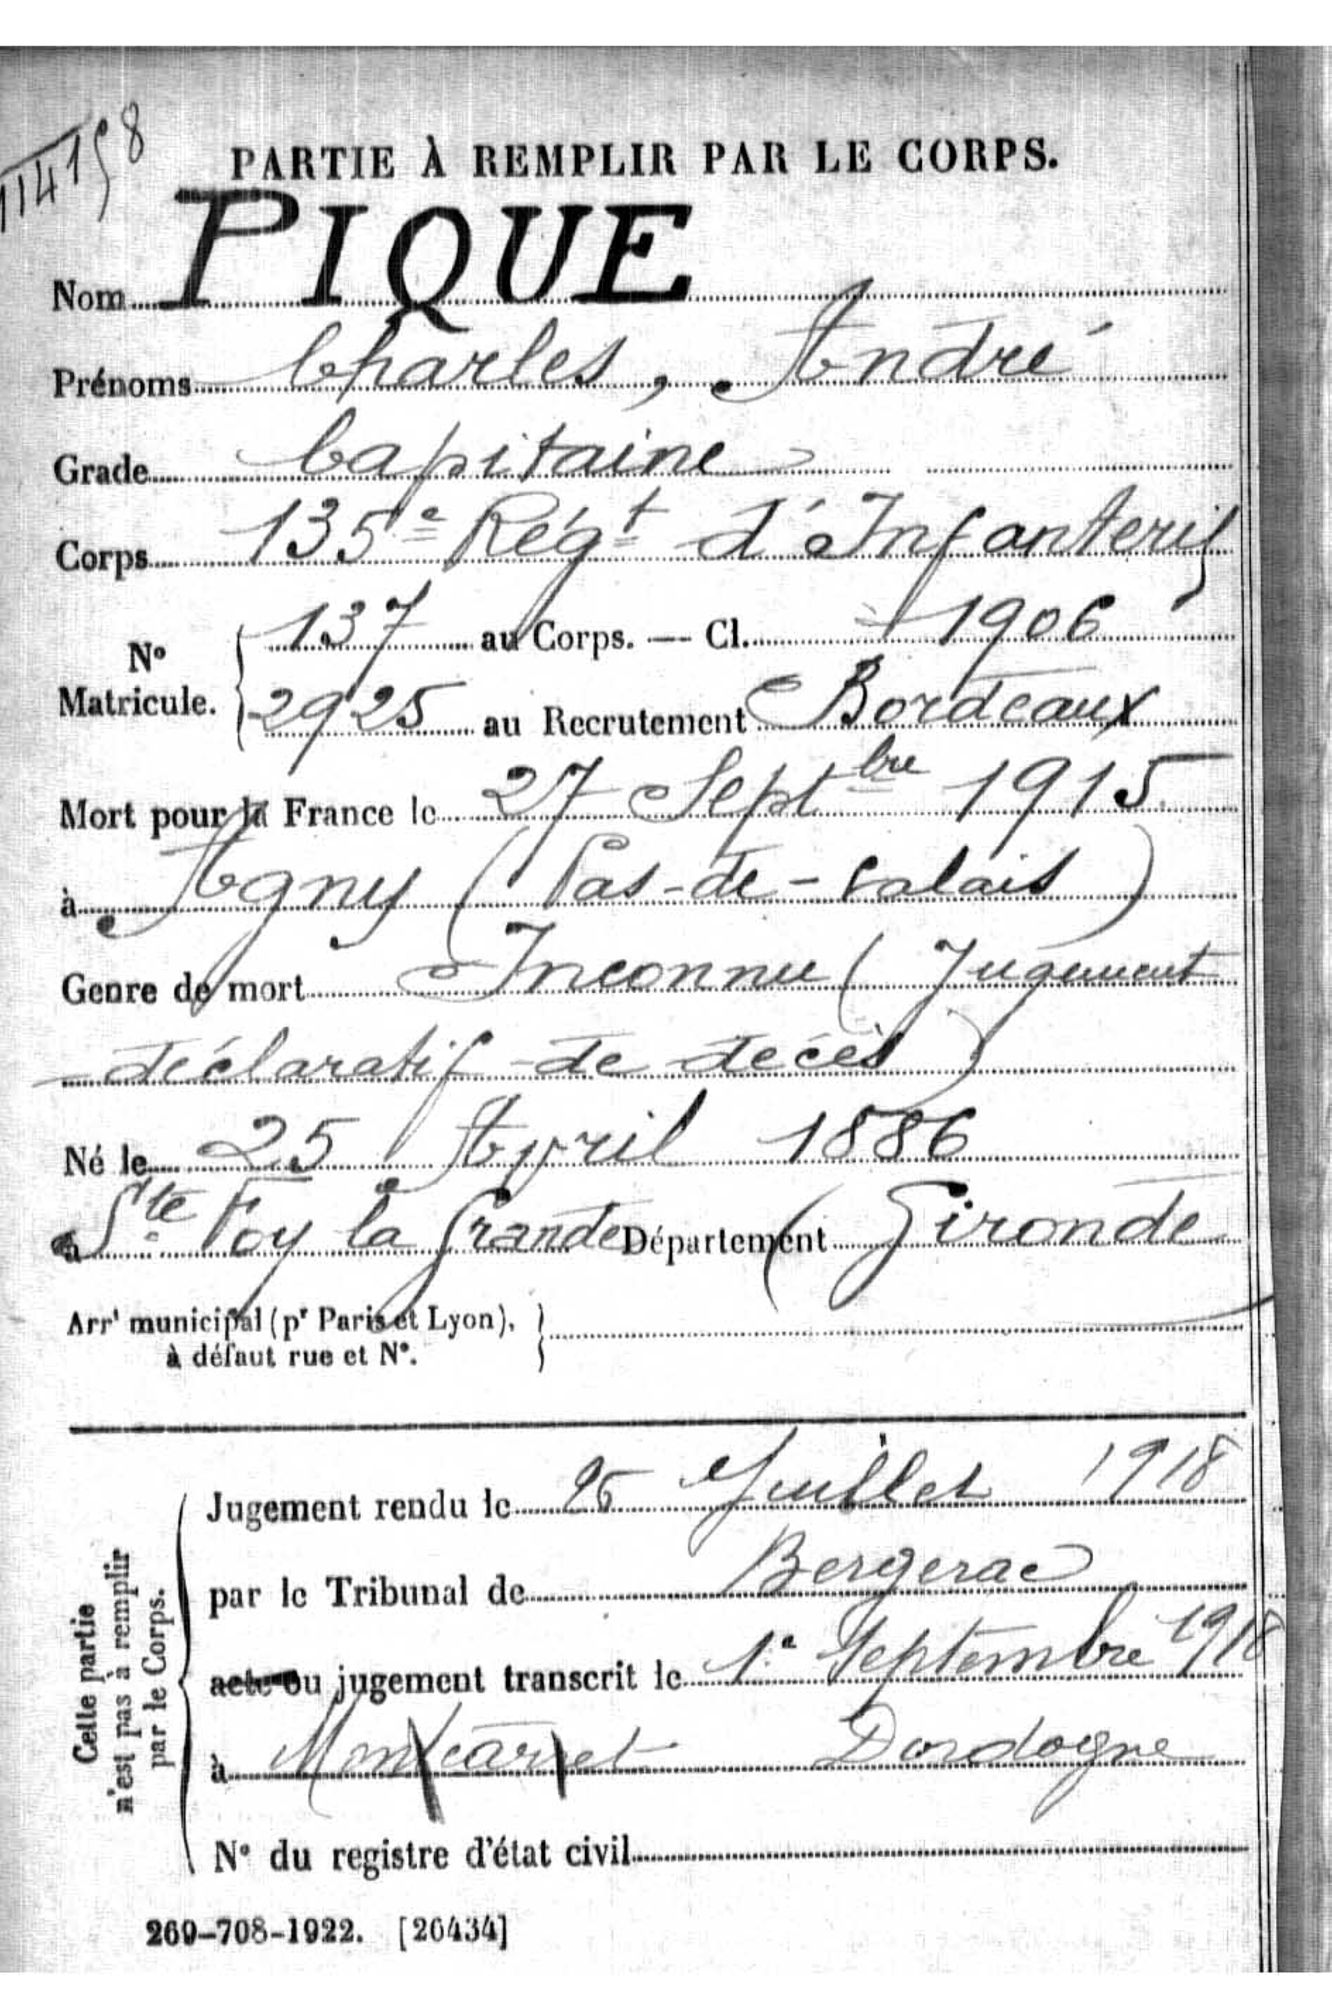 114158
PARTIE À REMPLIR PAR LE CORPS.
Nom PIQUE
Prénoms Charles, André
Grade Capitaine
Corps 135e Régt d'Infanterie
No Matricule. 137 au Corps. — Cl. 1906
2925 au Recrutement Bordeaux
Mort pour la France le 27 Septbre 1915
à Agny (Pas-de-Calais)
Genre de mort Inconnu (Jugement
déclaratif de décès)
Né le 25 Avril 1886
à Ste Foy la Grande Département Gironde
Arrt municipal (pr Paris et Lyon),
à défaut rue et N°.
Cette partie
n'est pas à remplir
par le Corps.
Jugement rendu le 25 Juillet 1918
par le Tribunal de Bergerac
acte ou jugement transcrit le 1e Septembre 1918
à Montcaret Dordogne
N° du registre d'état civil
269-708-1922. [26434]